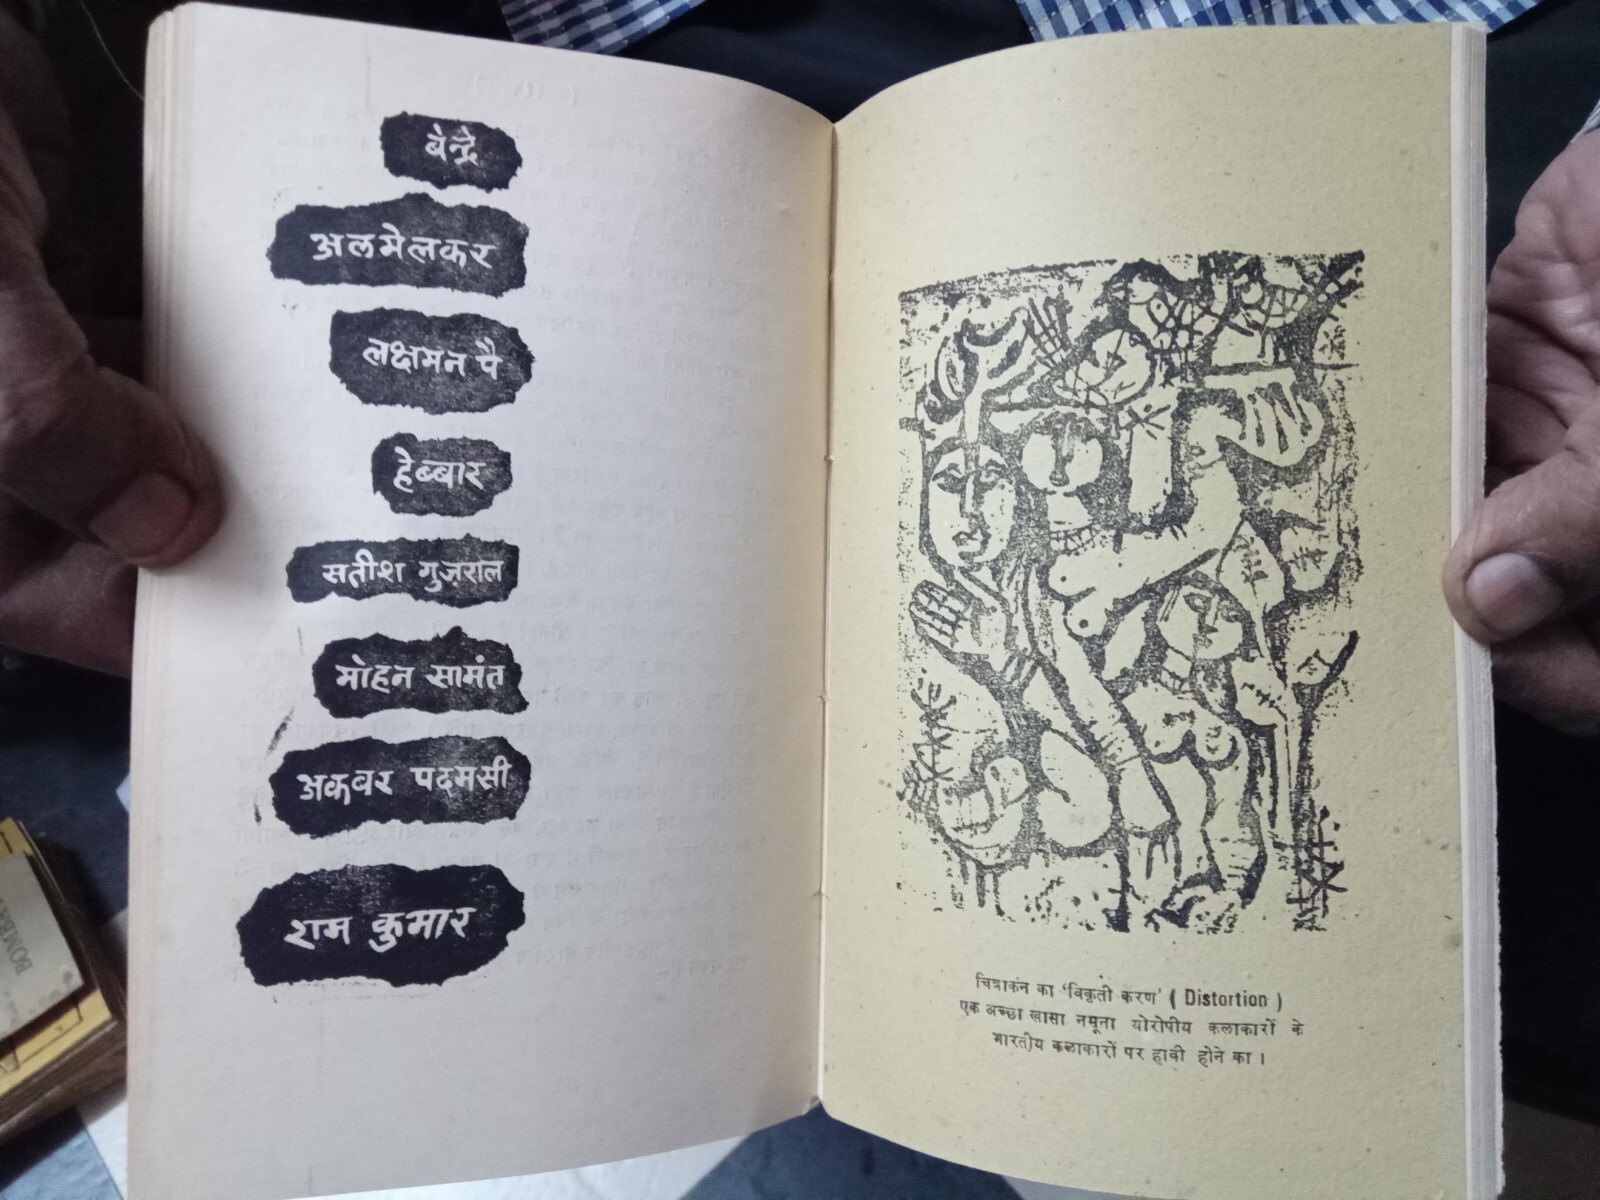 बेन्द्रे
अलमेलकर
लक्षमन पै
हेब्बार
सतीश गुजराल
मोहन सामंत
अकबर पदमसी
राम कुमार
चित्राकंन का 'विकृती करण' ( Distortion )
एक अच्छा खासा नमूना योरोपीय कलाकारों के
भारतीय कलाकारों पर हावी होने का ।